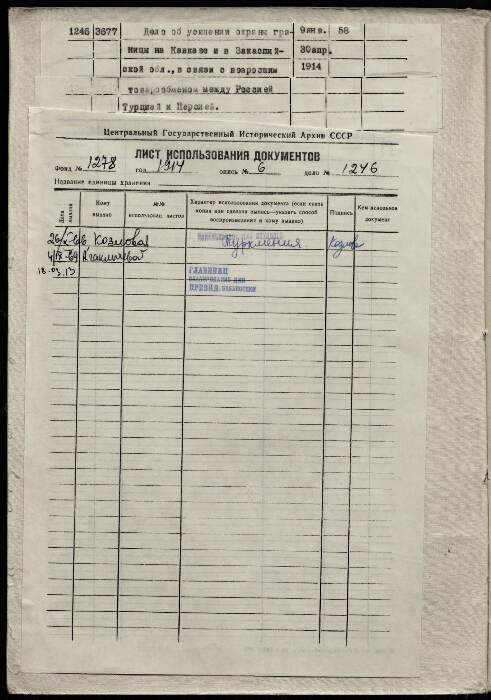 1246 3677 Дело об усилении охраны гра- 9янв. 58
ницы на Кавказе и в Закаспий- 30апр.
ской обл., в связи с возросшим 1914
товарообменом между Россией
Турцией и Персией.
Центральный Государственный Исторический Архив СССР
ЛИСТ ИСПОЛЬЗОВАНИЯ ДОКУМЕНТОВ
Фонд № 1278 год 1914 опись № 6 дело № 1246
Название единицы хранения
Дата выдачи
Кому выдано
№№ использован. листов
Характер использования документа (если снята копия или сделана выпись—указать способ воспроизведения и кому выдано)
Подпись
Кем использов. документ
Козловой Туркмения. Козлова
18.03.13 ГЛАВНИИЦ
СКАНИРОВАНИЕ ДЛЯ
ПРЕЗИД. БИБЛИОТЕКИ